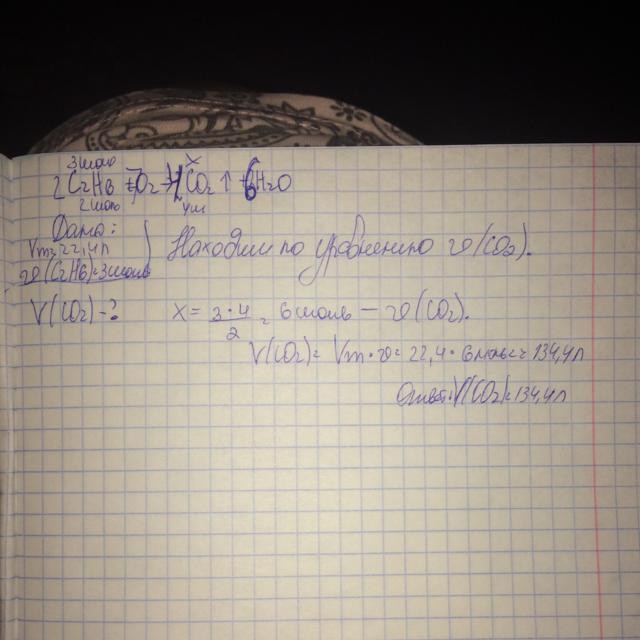 3 моль x
2C2H6 + 7O2 → 4CO2 ↑ + 6H2O
2 моль 4 м
Дано:
Vm=22,4л
ν(C2H6)=3моль
Находим по уровнению ν(CO2).
V(CO2)-?
x = 3·4/2 = 6 моль – ν(CO2).
V(CO2)= Vm·ν= 22,4·6моль= 134,4л
Ответ: V(CO2)=134,4л